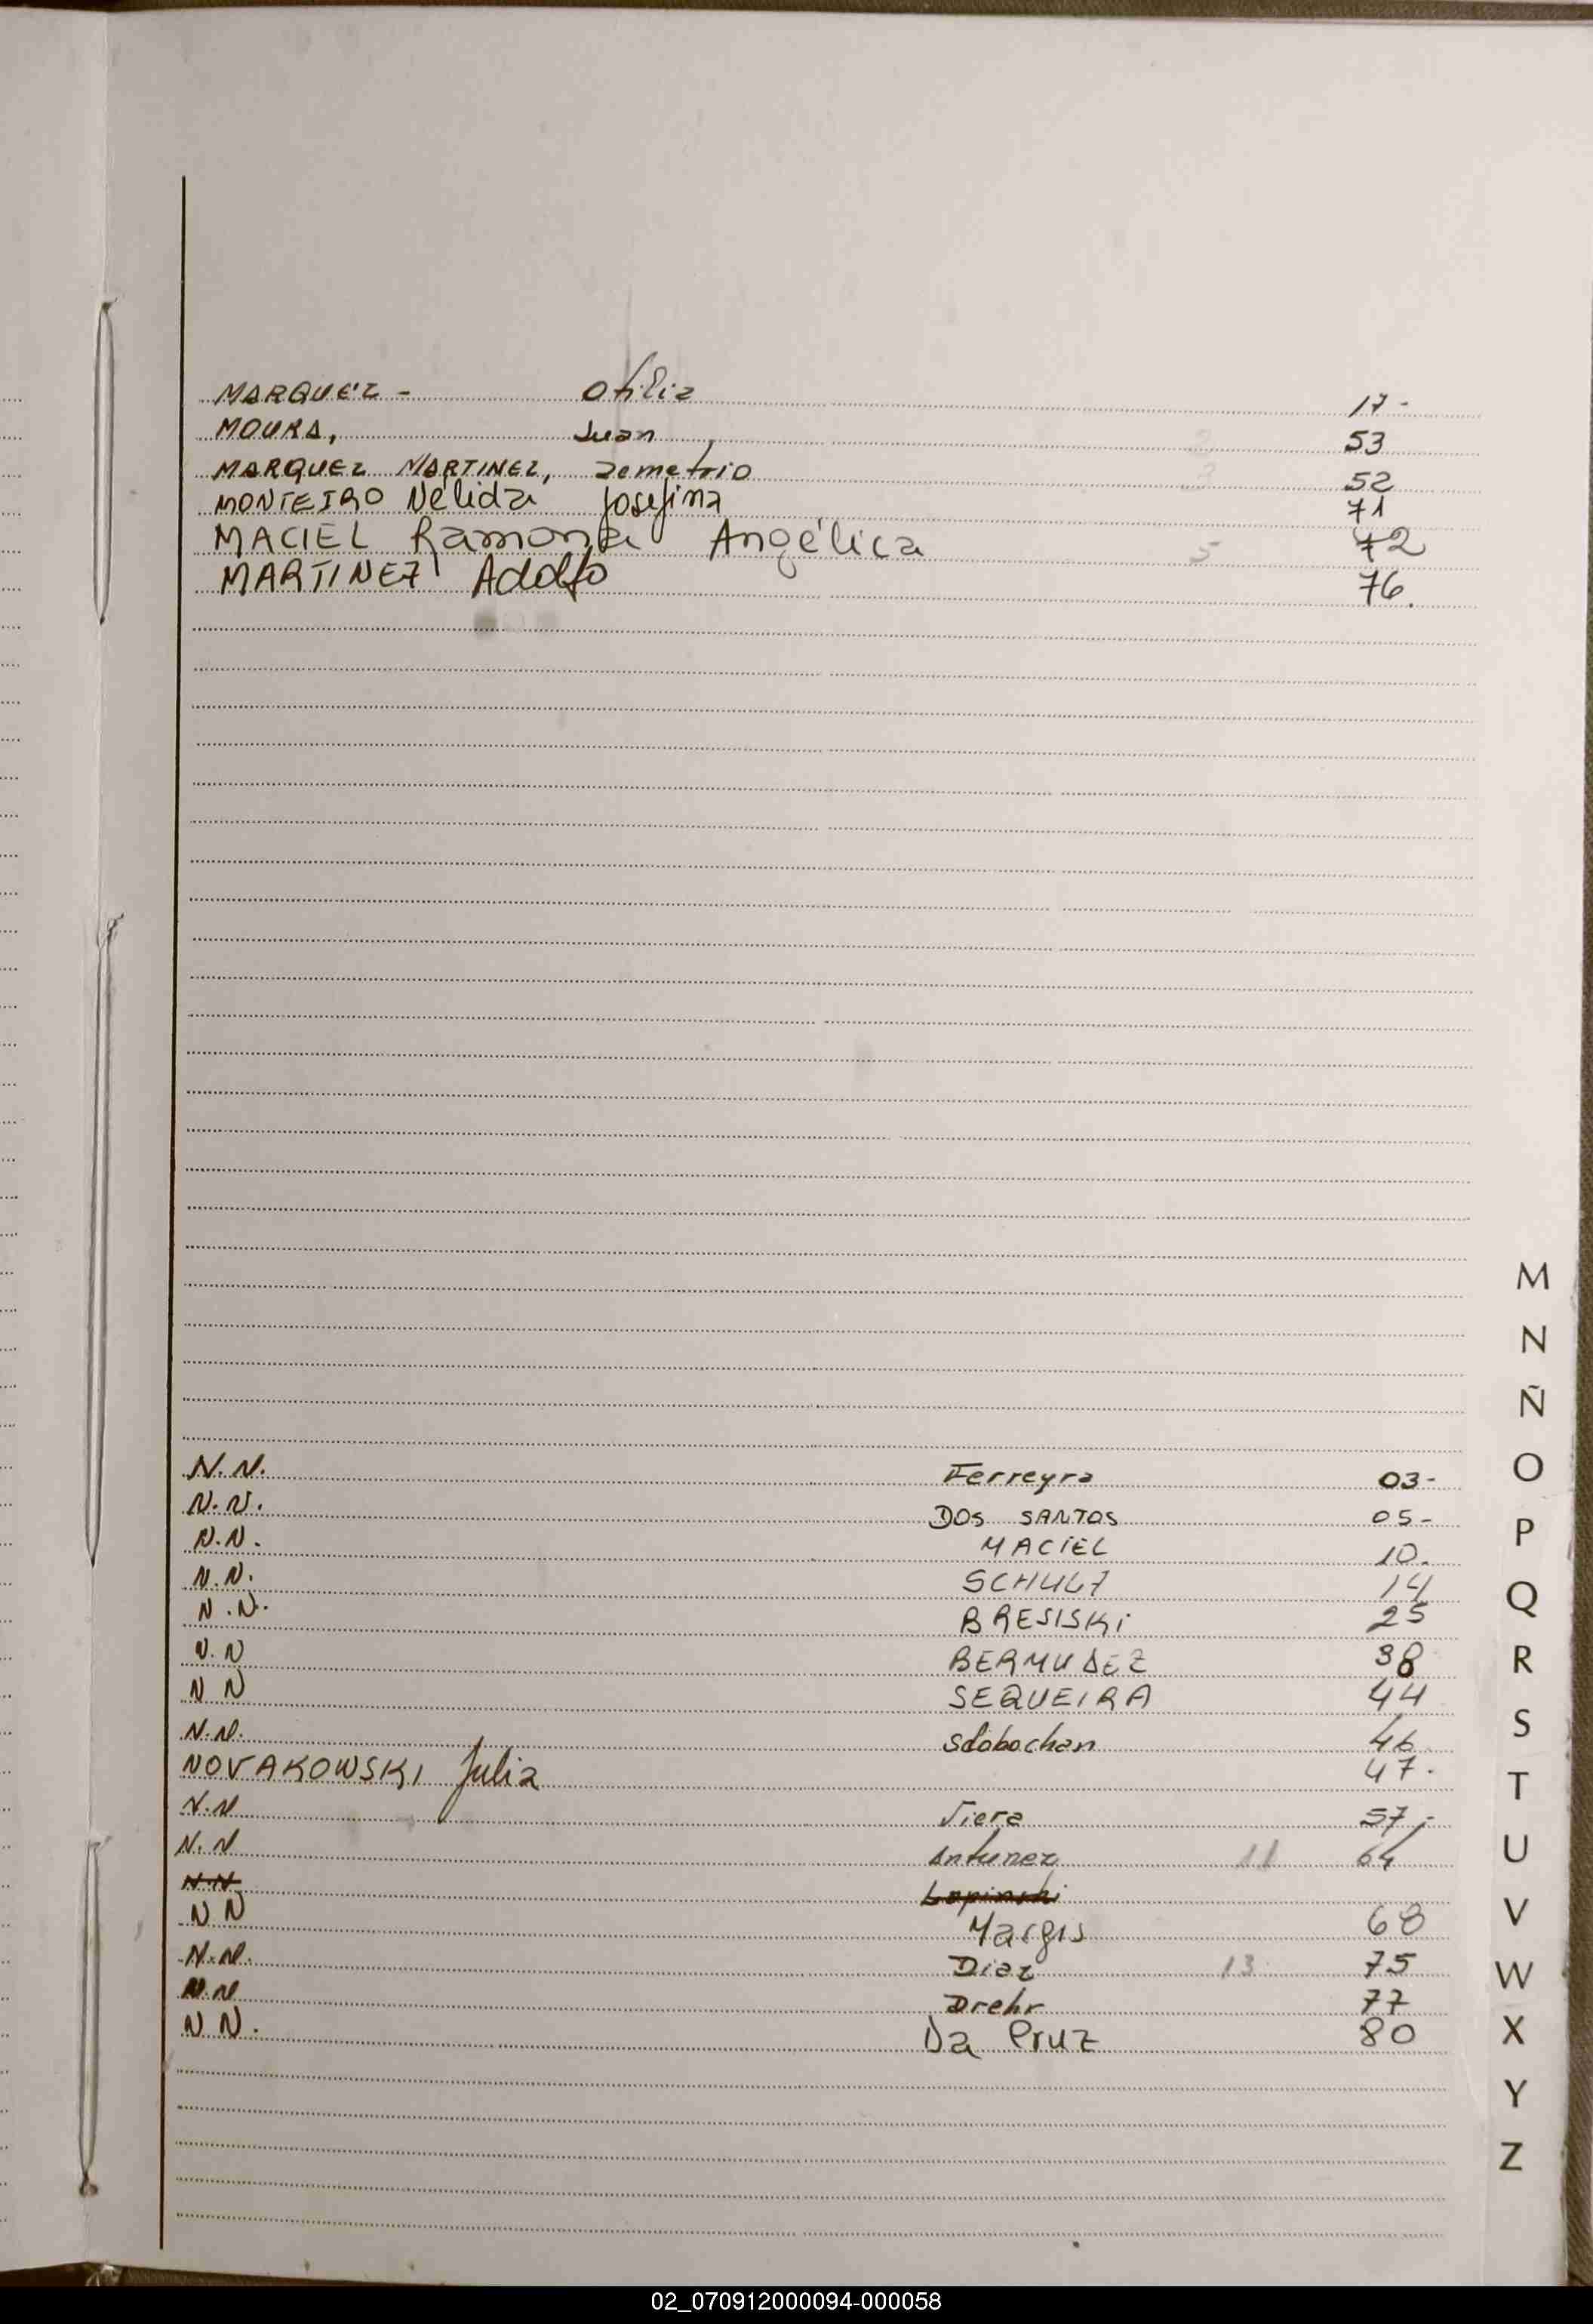 MARQUEZ - Otilia 17-
MOURA, Juan 53
MARQUEZ MARTINEZ, Demetrio 52
MONTEIRO Nélida Josefina 71
MACIEL Ramona Angélica 5 72
MARTINEZ Adolfo 76.
M
N
Ñ
O
P
Q
R
S
T
U
V
W
X
Y
Z
N.N. Ferreyra 03-
N.N. DOS SANTOS 05-
N.N. MACIEL 10.
N.N. SCHULZ 14
N.N. BRESISKI 25
N.N BERMUDEZ 38
N N SEQUEIRA 44
N.N. Slobochan 46
NOVAKOWSKI Julia 47.
N.N Viera 57-
N.N Antunez 11 64
N.N Lapinski
N N Margis 68
N.N. Diaz 13 75
N.N Drehr 77
N N. Da Cruz 80
02_070912000094-000058